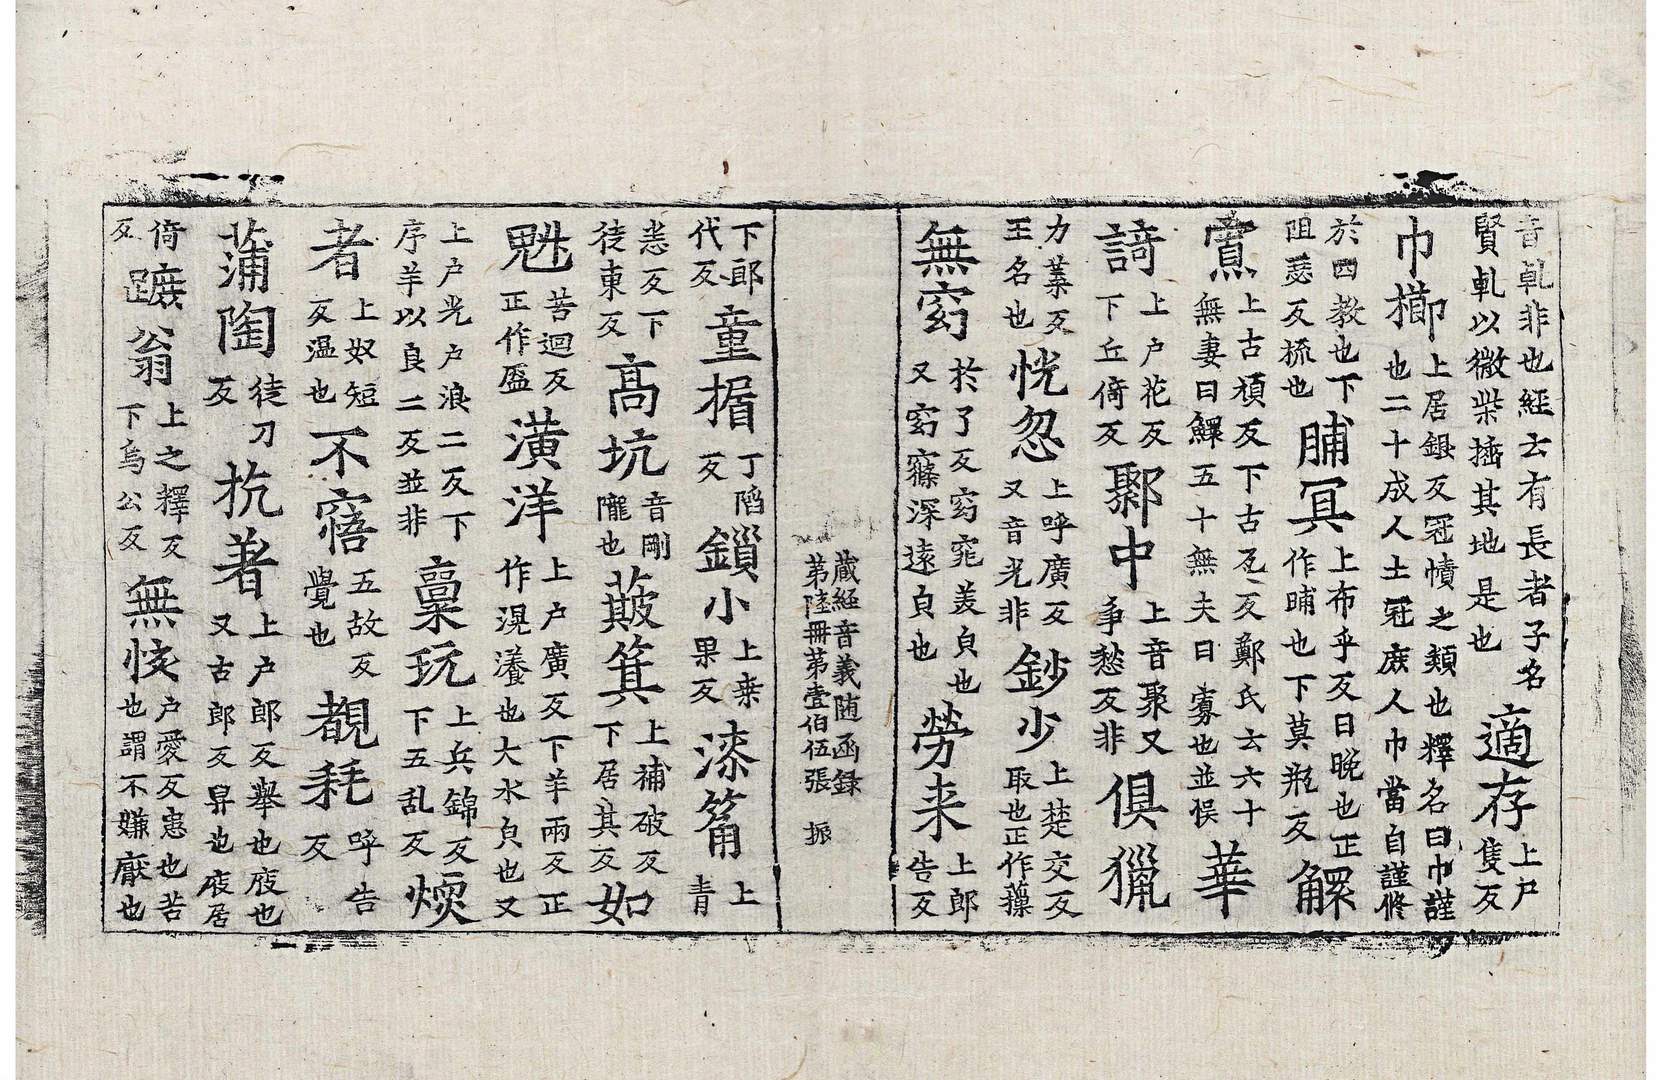 音軋非也経云有長者子名賢軋以微柴揷其地是也適存上户隻反
巾櫛上居銀反冠幘之類也釋名曰巾謹也二十成人士冠庶人巾當自謹修
於四教也下阻瑟反梳也脯冥上布乎反日晚也正作晡也下莫瓶反鰥
上古頑反下古瓦反鄭氏云六十無妻曰鰥五十無夫曰寡也並悮華
上户花反下丘倚反鄹中上音聚又爭愁反非俱獵
力葉反王名也恍忽上呼廣反又音光非鈔少上楚交反取也正作
無窈於了反窈窕羙皃也又窈窱深遠皃也勞来上郎告反
蔵経音義随函録
苐陸冊苐壹伯伍張 振
下郎代反童揗丁滔反鎻小上桒果反漆筩上青
恙反下徒東反高坑音剛隴也簸箕上補破反下居其反如
魁苦迴反正作盔潢洋上户廣反下羊兩反正作滉瀁也大水皃也又
上户光户浪二反下序羊以良二反並非稟玩上兵錦反下五乱反煗
者上奴短反温也不寤五故反覺也覩耗呼告反
蒲陶徒刀反抗著上户郎反舉也庪也又古郎反舁也庪居
倚反蹠翁上之釋反下烏公反無恔户愛反恚也苦也謂不嫌厭也